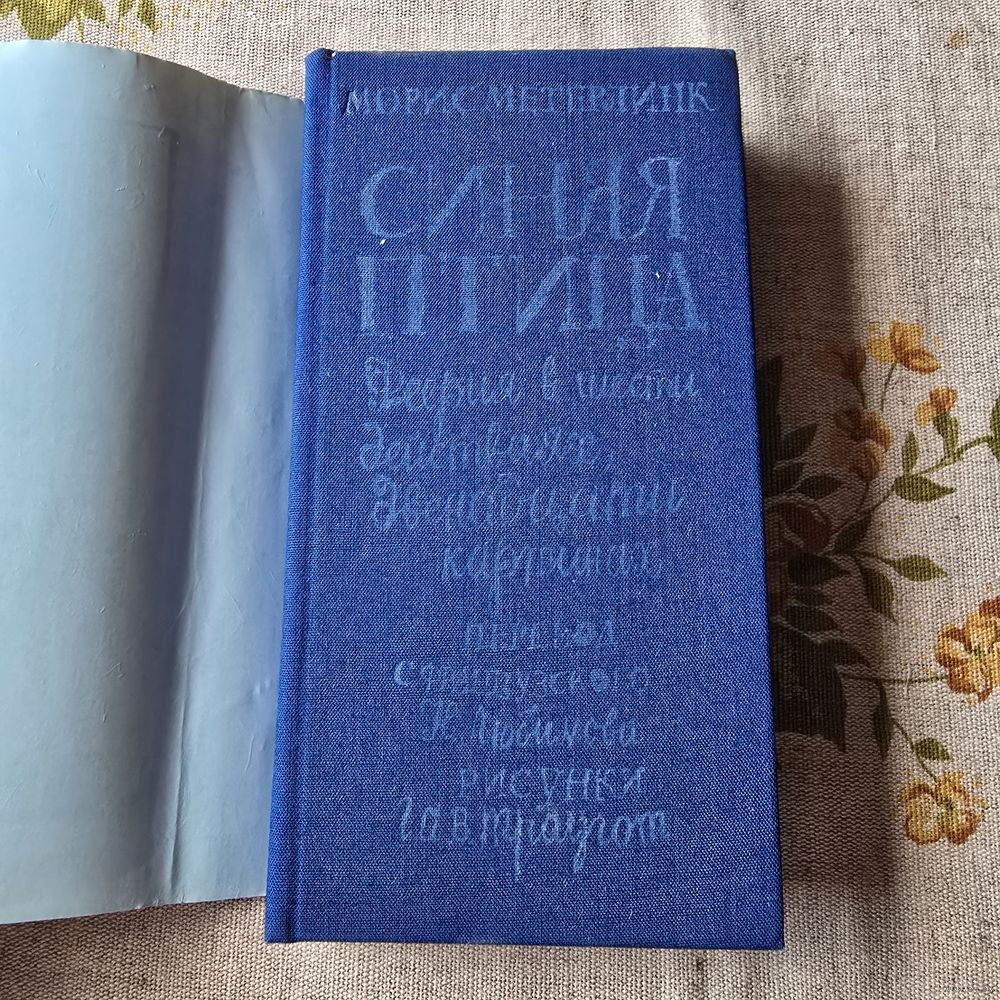 МОРИС МЕТЕРЛИНК
СИНЯЯ
ПТИЦА
Феерия в шести
действиях,
двенадцати
картинах
ПЕРЕВОД
С французского
Н. Любимова
РИСУНКИ
Г.А.В. Траугот